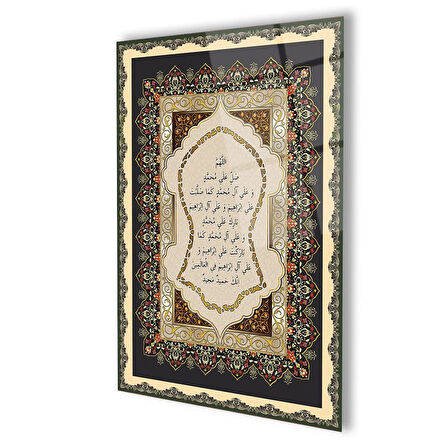 اللهم
صل على محمد
و على آل محمد كما صليت
على إبراهيم و على آل إبراهيم
بارك على محمد
و على آل محمد كما
باركت على إبراهيم و
على آل إبراهيم في العالمين
إنك حميد مجيد